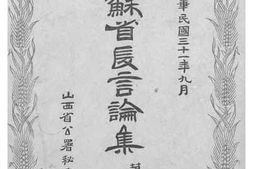 華民國三十一年九月
蘇省長言論集
山西省公署秘